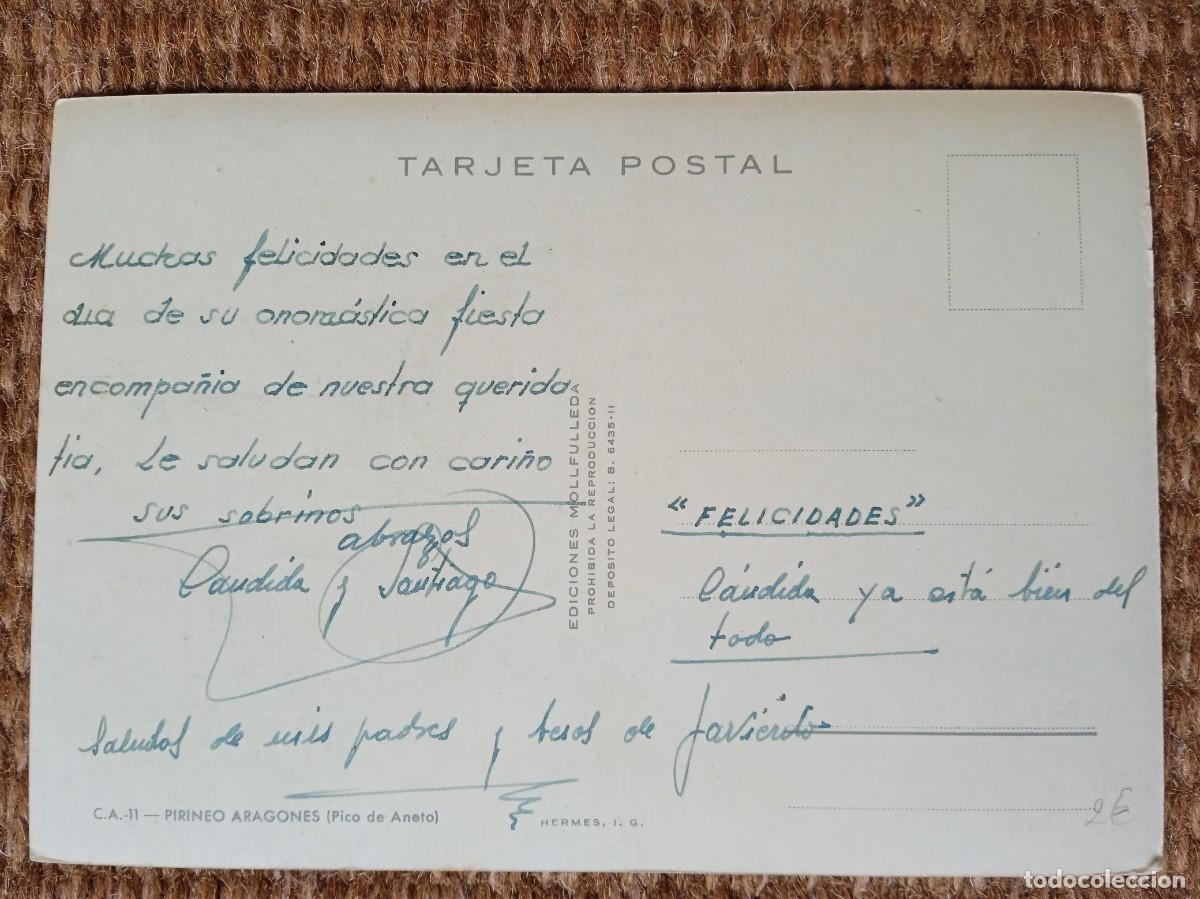 TARJETA POSTAL
Muchas felicidades en el
dia de su onomástica fiesta
encompañia de nuestra querida
tia, Le saludan con cariño
sus sobrinos
abrazos
Cándida y Santiago
Saludos de mis padres y besos de Javierito
EDICIONES MOLLFULLEDA
PROHIBIDA LA REPRODUCCION
DEPOSITO LEGAL: B. 6435-II
"FELICIDADES"
Cándida ya está bien del
todo
C.A.-11 — PIRINEO ARAGONES (Pico de Aneto)
HERMES, I. G.
2€
todocoleccion